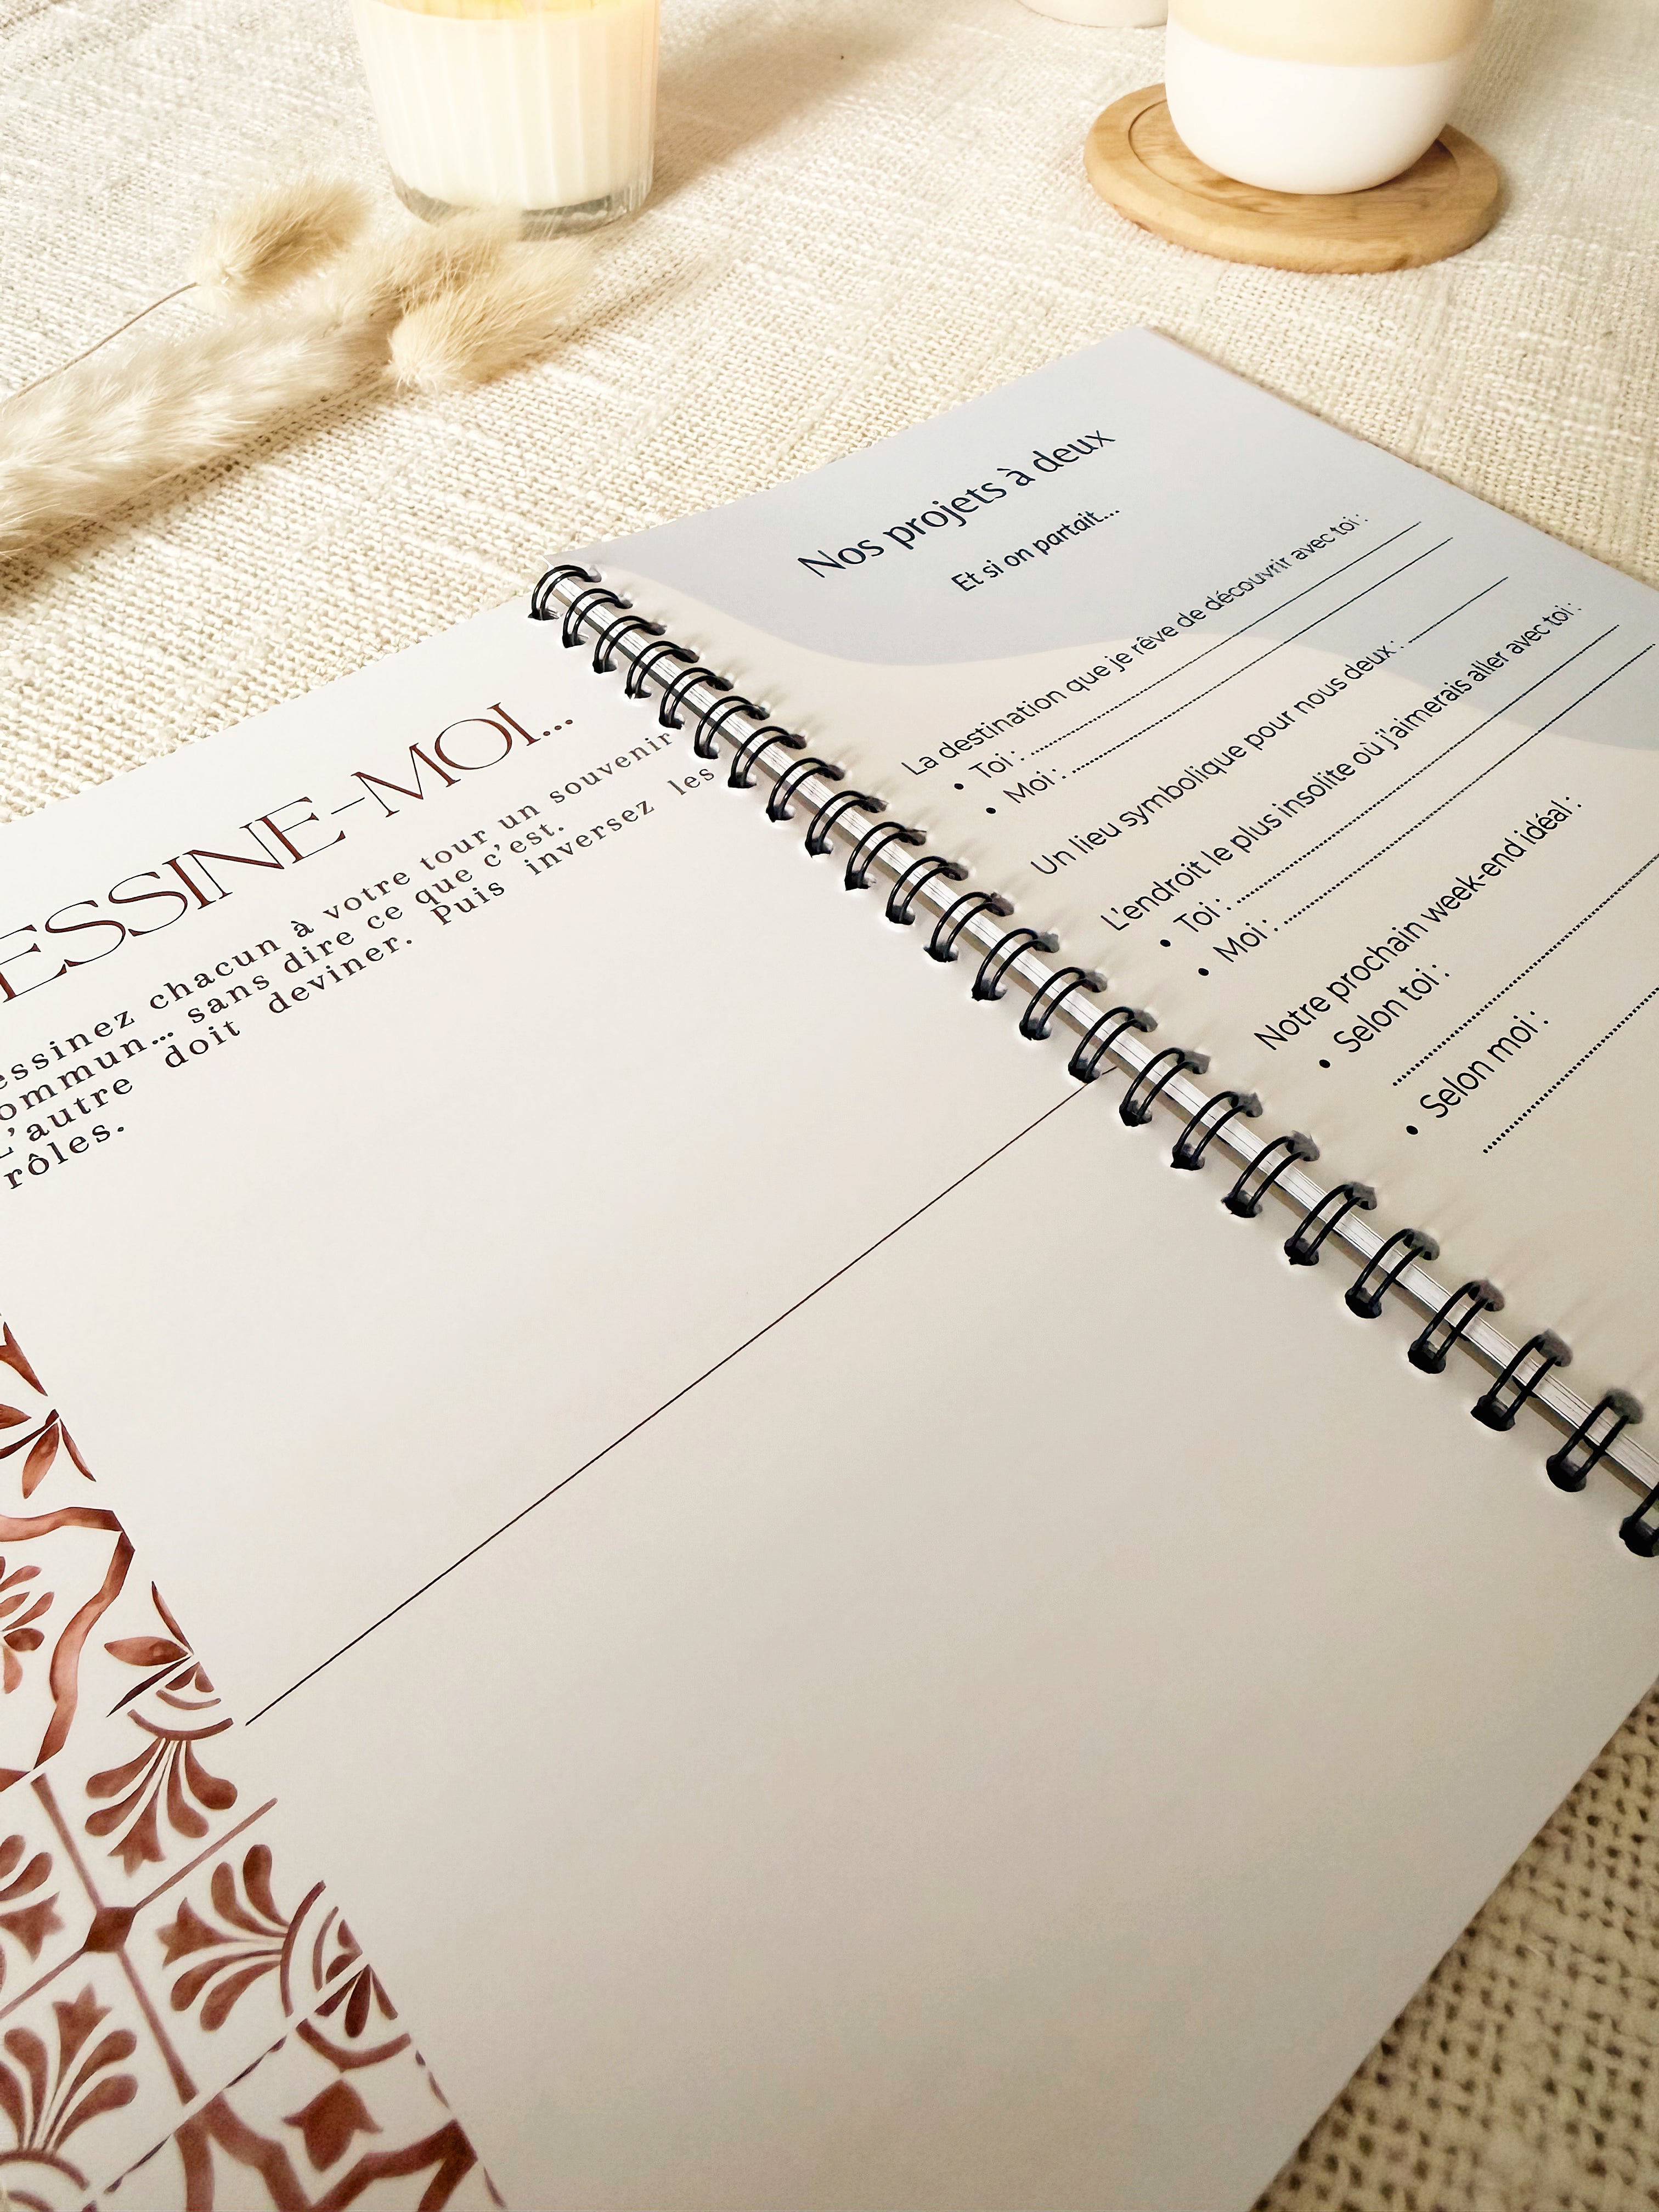 ESSINE-MOI...
essinez chacun à votre tour un souvenir
ommun... sans dire ce que c'est.
L'autre doit deviner. Puis inversez les
rôles.
Nos projets à deux
Et si on partait...
La destination que je rêve de découvrir avec toi :
• Toi :
• Moi :
Un lieu symbolique pour nous deux :
L'endroit le plus insolite où j'aimerais aller avec toi :
• Toi :
• Moi :
Notre prochain week-end idéal :
• Selon toi :
• Selon moi :